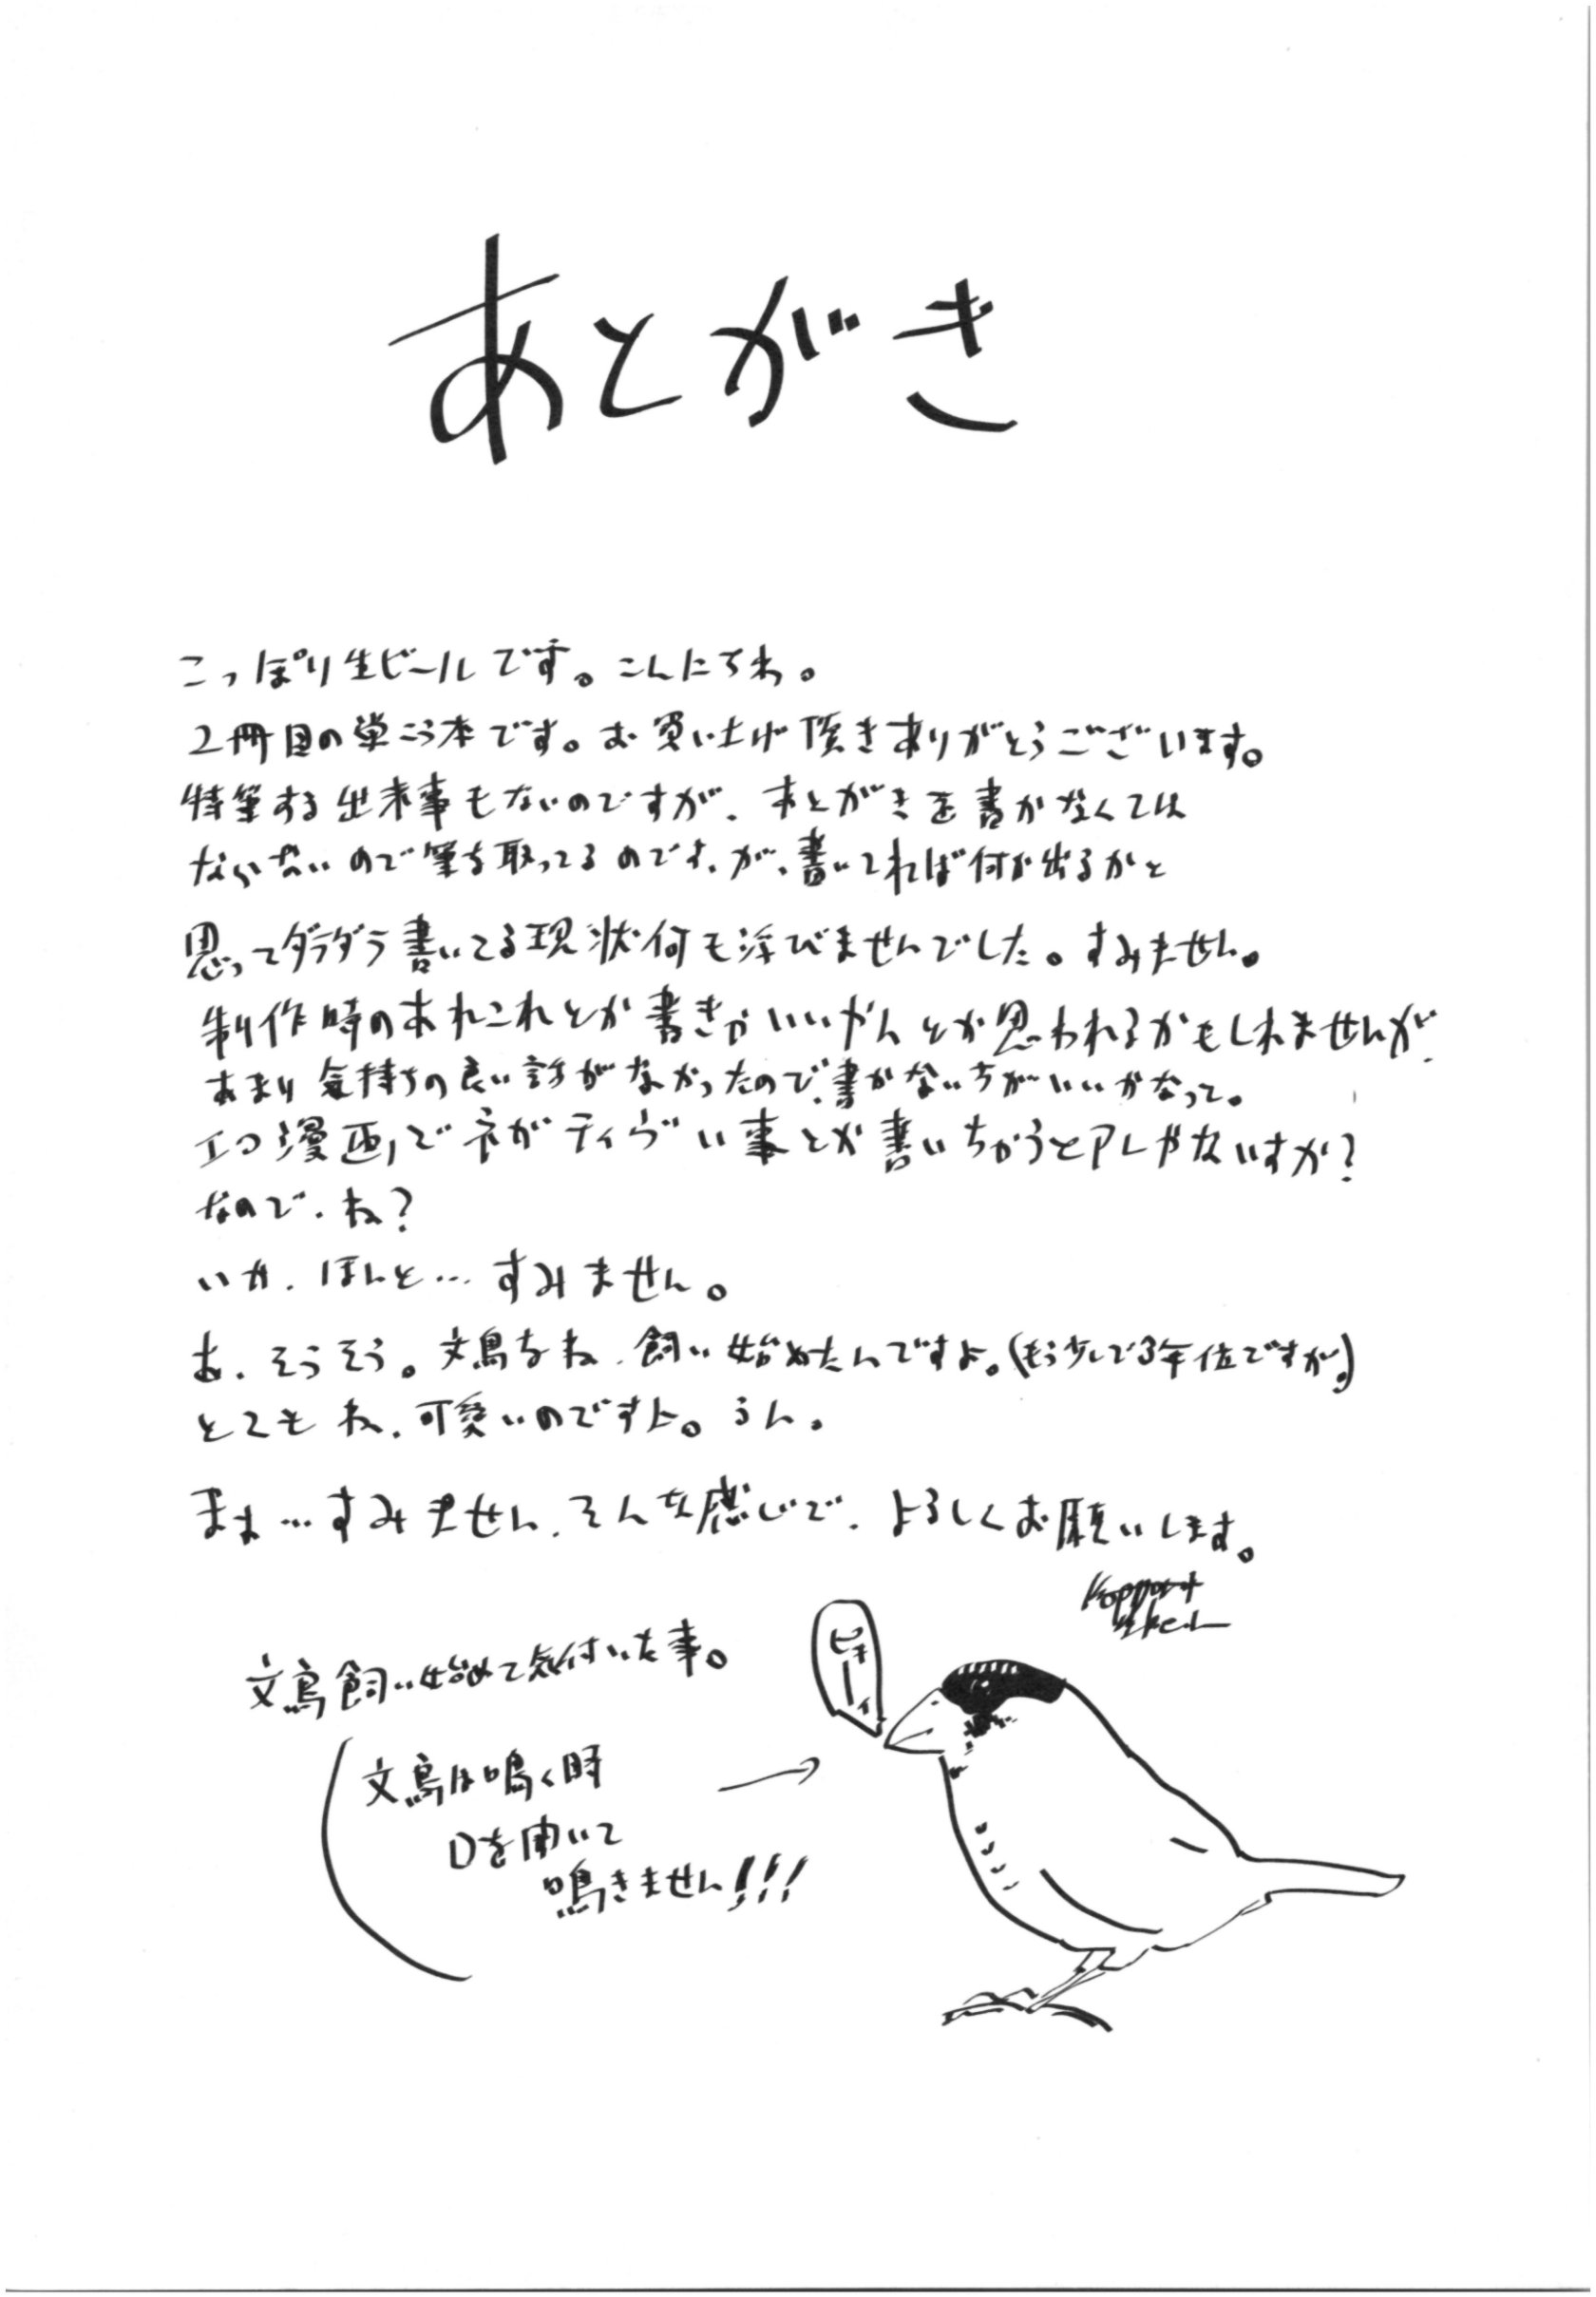 あとがき
こっぽり生ビールです。こんにちわ。
2冊目の単こう本です。お買い上げ頂きありがとうございます。
特筆する出来事もないのですが、あとがきを書かなくては
ならないので筆を取ってるのです、が、書いてれば何か出るかと
思ってダラダラ書いてる現状何も浮びませんでした。すみません。
制作時のあれこれとか書きゃいいやんとか思われるかもしれませんが、
あまり気持ちの良い話がなかったので、書かないちがいいかなって。
エロ漫画でネガティヴい事とか書いちゃうとアレやないすか？
なので、ね？
いや、ほんと…すみません。
あ、そうそう。文鳥をね、飼い始めたんですよ。(もう少しで3年位ですが。)
とてもね、可愛いのですよ。うん。
まぁ…すみません、そんな感じで、よろしくお願いします。
文鳥飼い始めて気付いた事。
ピキーィ
文鳥は鳴く時
口を開いて
鳴きません!!!